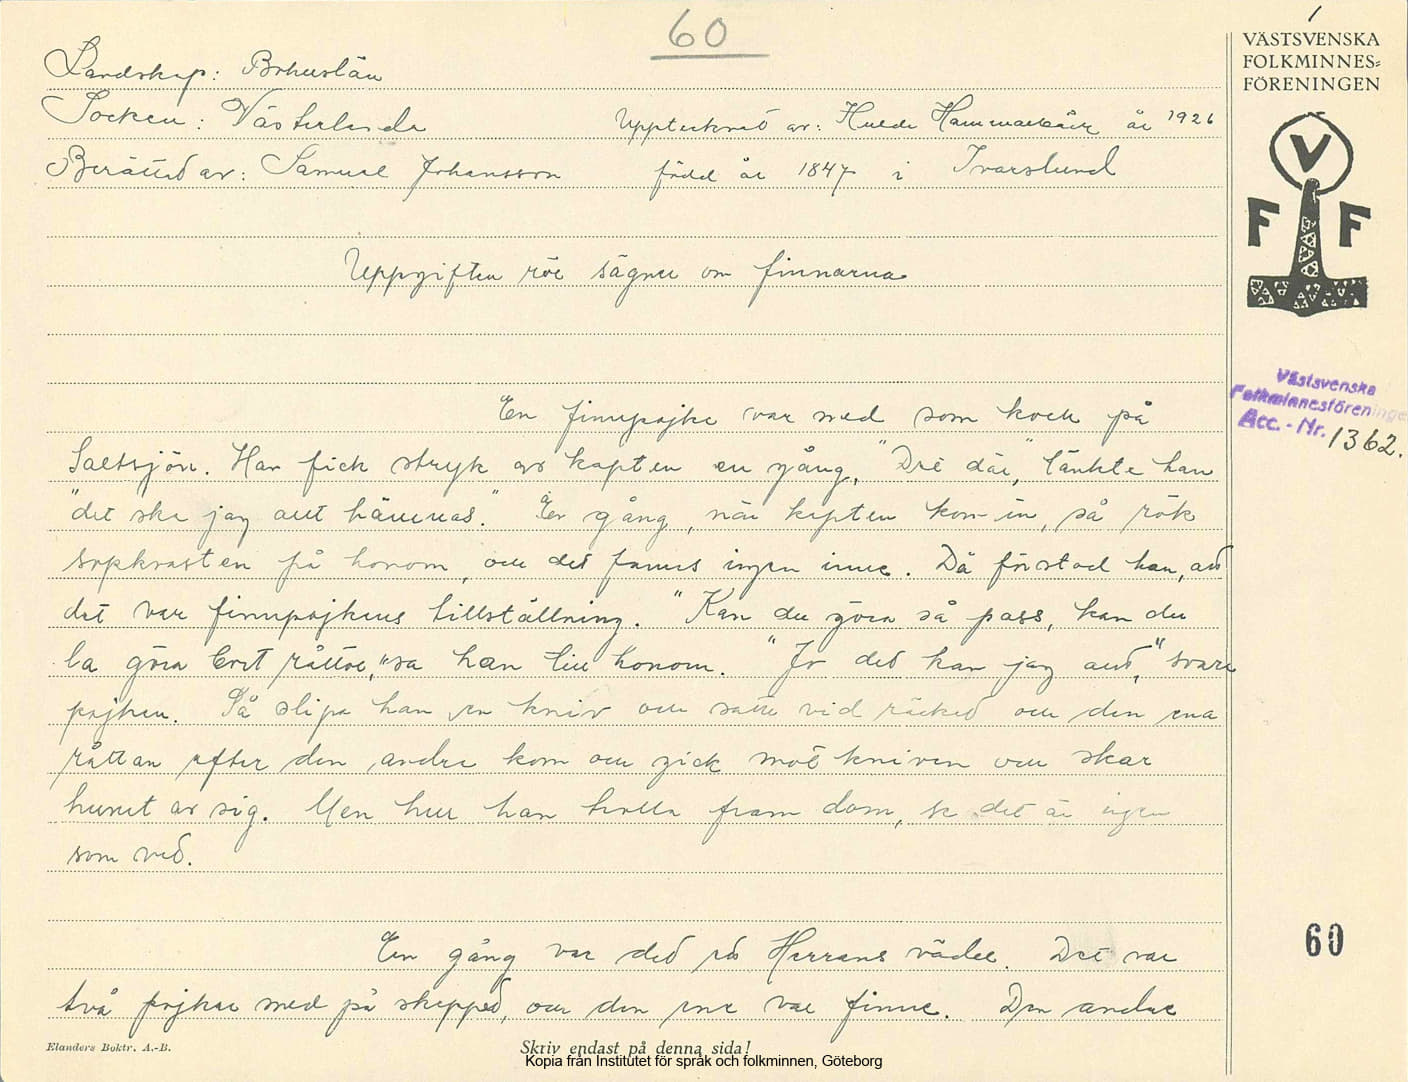 60
1
VÄSTSVENSKA
FOLKMINNES=
FÖRENINGEN
V
F F
Landskap: Bohuslän
Socken: Västerlanda Upptecknat av: Hulda Hammarbäck år 1926
Berättad av: Samuel Johansson född år 1847 i Ivarslund
Uppgiften rör sägner om finnarna
Västsvenska
Folkminnesföreningen
Acc.-Nr. 1362.
En finnpojke var med som kock på
Saltsjön. Han fick stryk av kapten en gång. "Dré där," tänkte han
"det ska jag allt hämnas". En gång, när kapten kom in, så rök
sopkvasten på honom, och det fanns ingen inne. Då förstod han, att
det var finnpojkens tillställning. "Kan du göra så pass, kan du
la göra bort råttor," sa han till honom. "Jo det kan jag allt," svara
pojken. Så slipa han en kniv och satte vid räcket och den ena
råttan efter den andra kom och gick mot kniven och skar
huvet av sig. Men hur han trolla fram dom, se det är ingen
som vet.
En gång var det ett Herrans väder. Det var
två pojkar med på skeppet, och den ene var finne. Den andre
60
Elanders Boktr. A.-B.
Skriv endast på denna sida!
Kopia från Institutet för språk och folkminnen, Göteborg